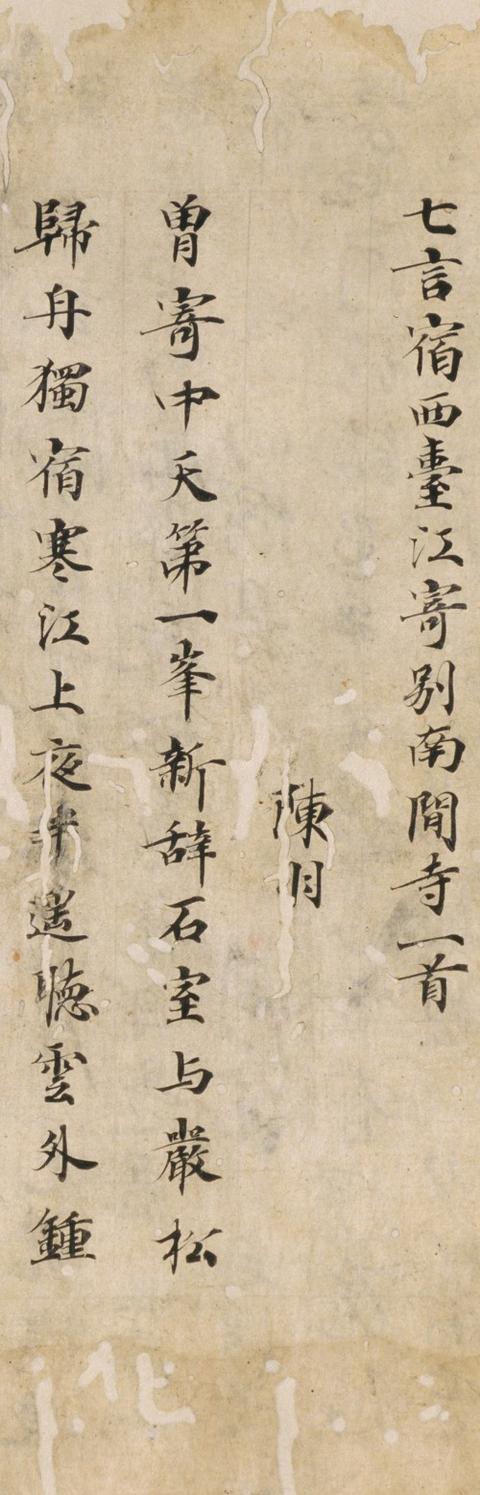 七言宿西臺江寄別南閒寺一首
陳羽
曽寄中天第一峯新辞石室与巖松
歸舟獨宿寒江上夜半遥聴雲外鍾